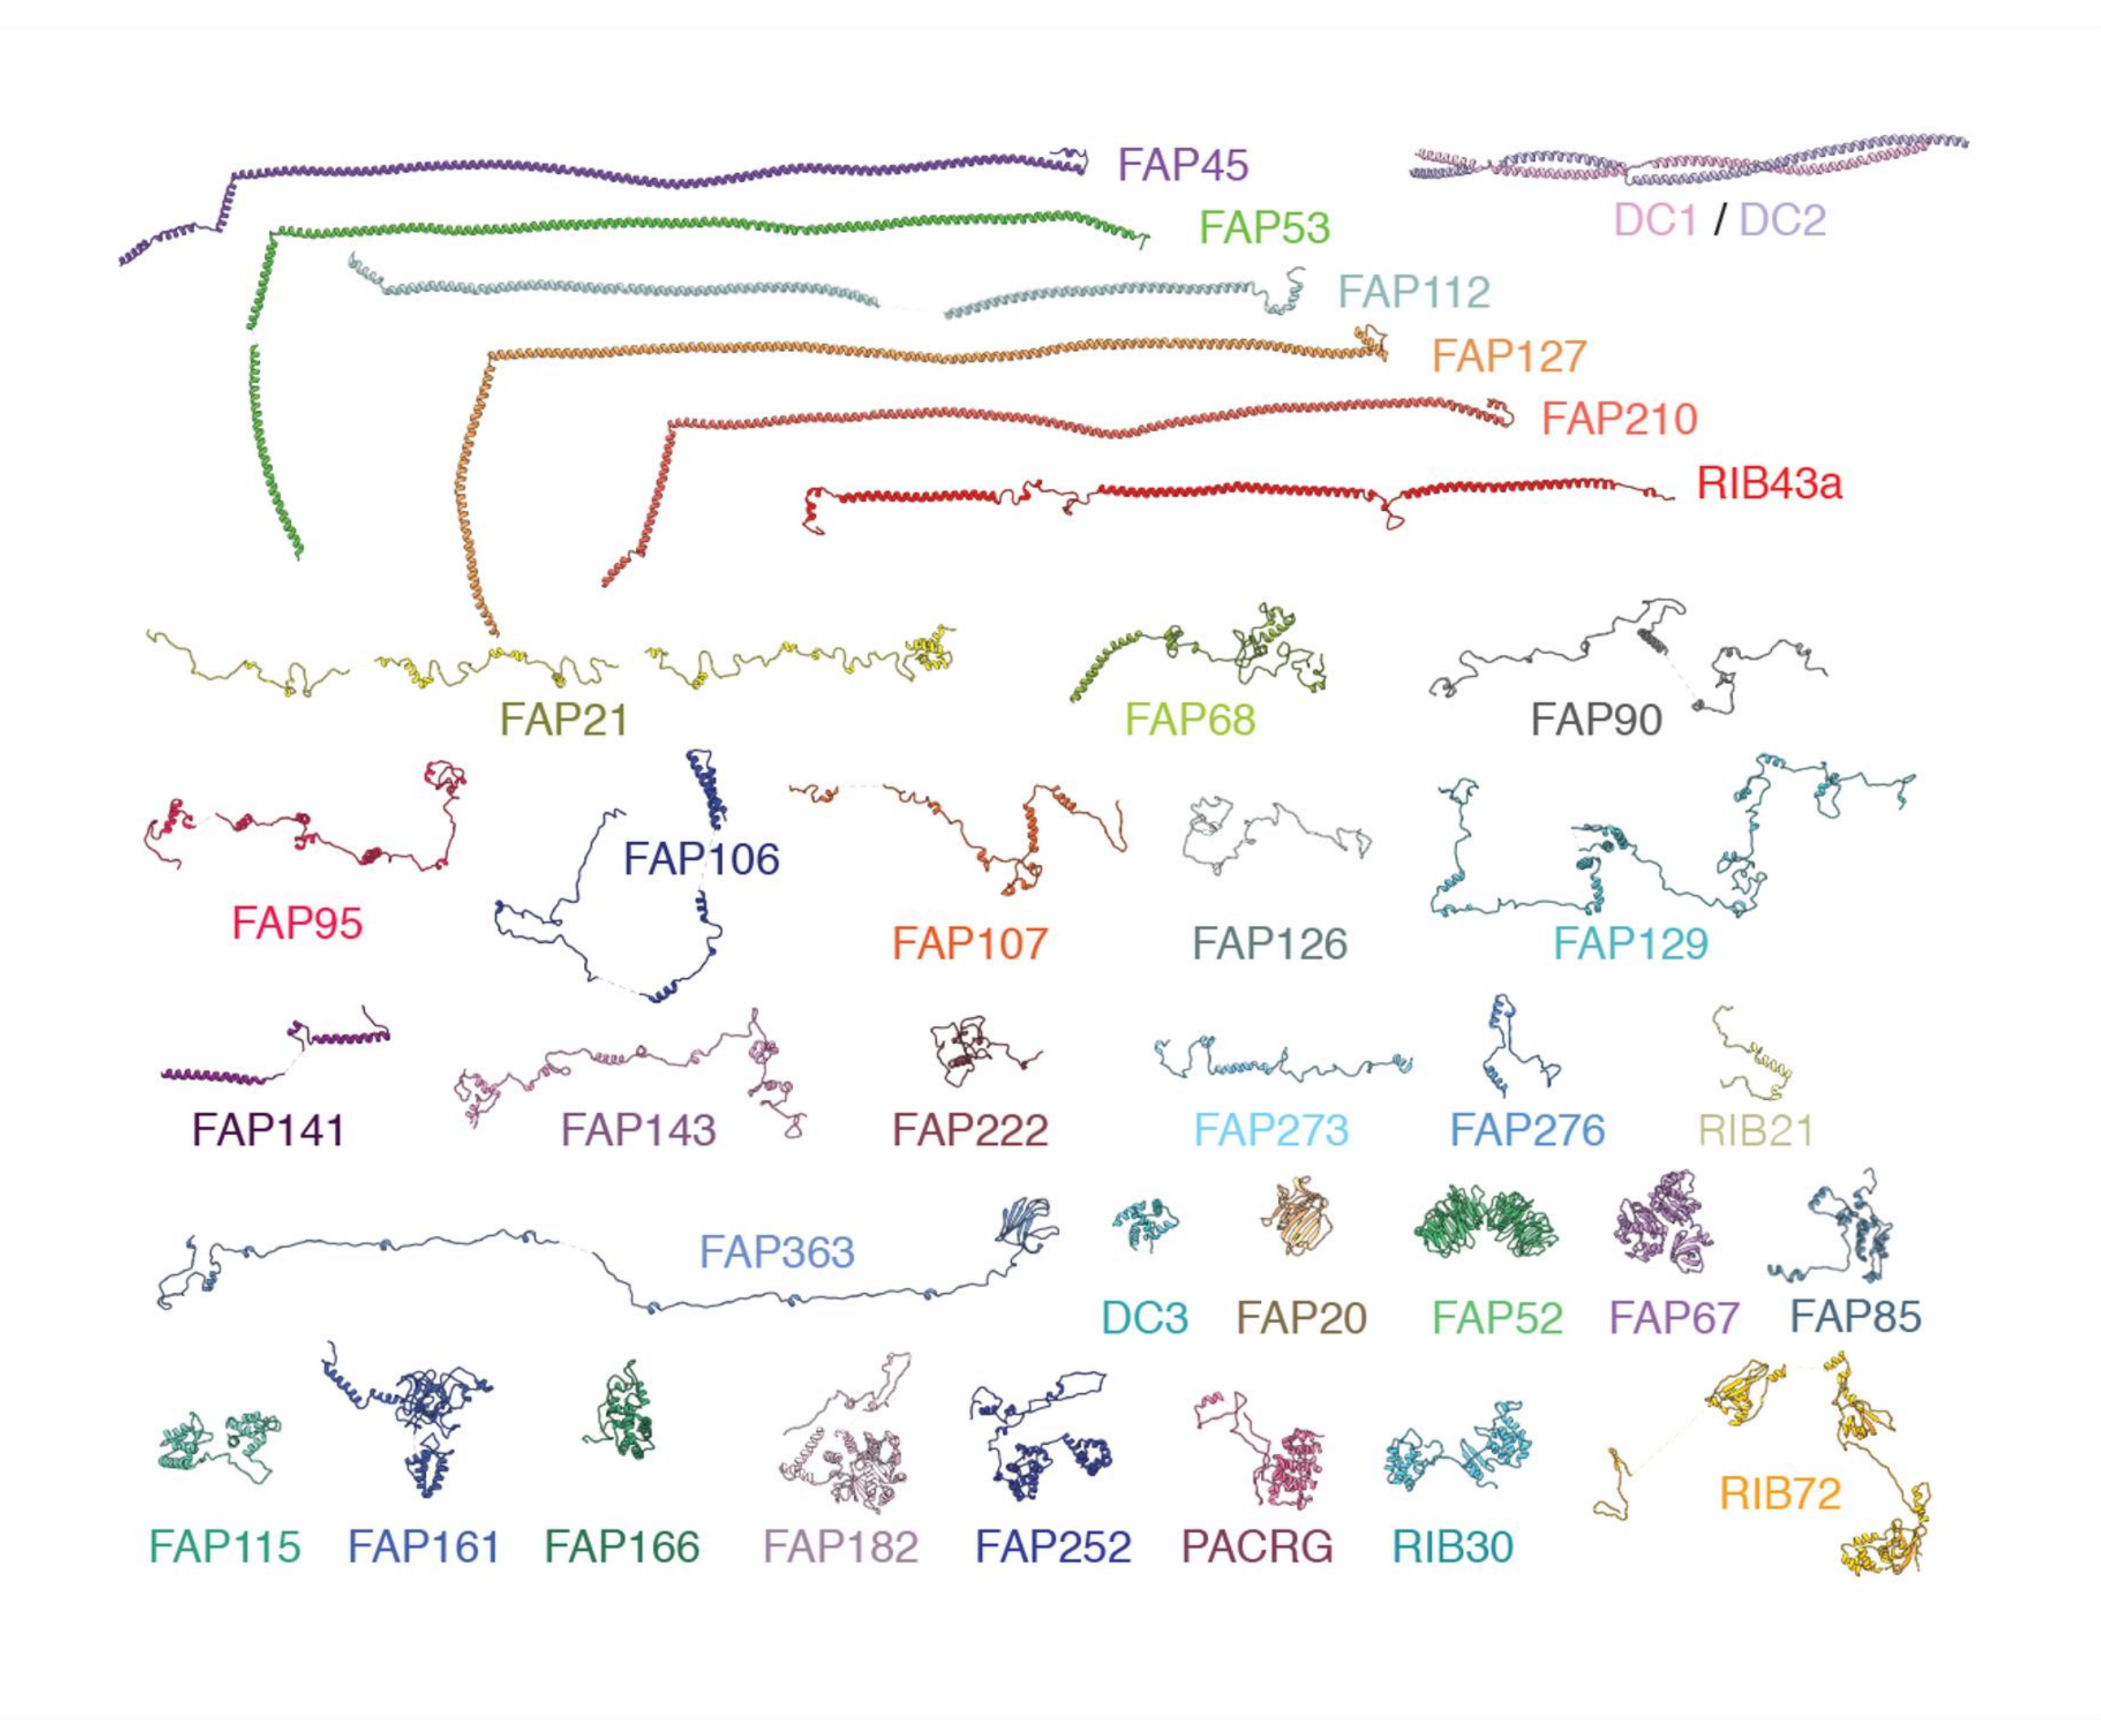 FAP45
DC1 / DC2
FAP53
FAP112
FAP127
FAP210
RIB43a
FAP21
FAP68
FAP90
FAP95
FAP106
FAP107
FAP126
FAP129
FAP141
FAP143
FAP222
FAP273
FAP276
RIB21
FAP363
DC3
FAP20
FAP52
FAP67
FAP85
FAP115
FAP161
FAP166
FAP182
FAP252
PACRG
RIB30
RIB72